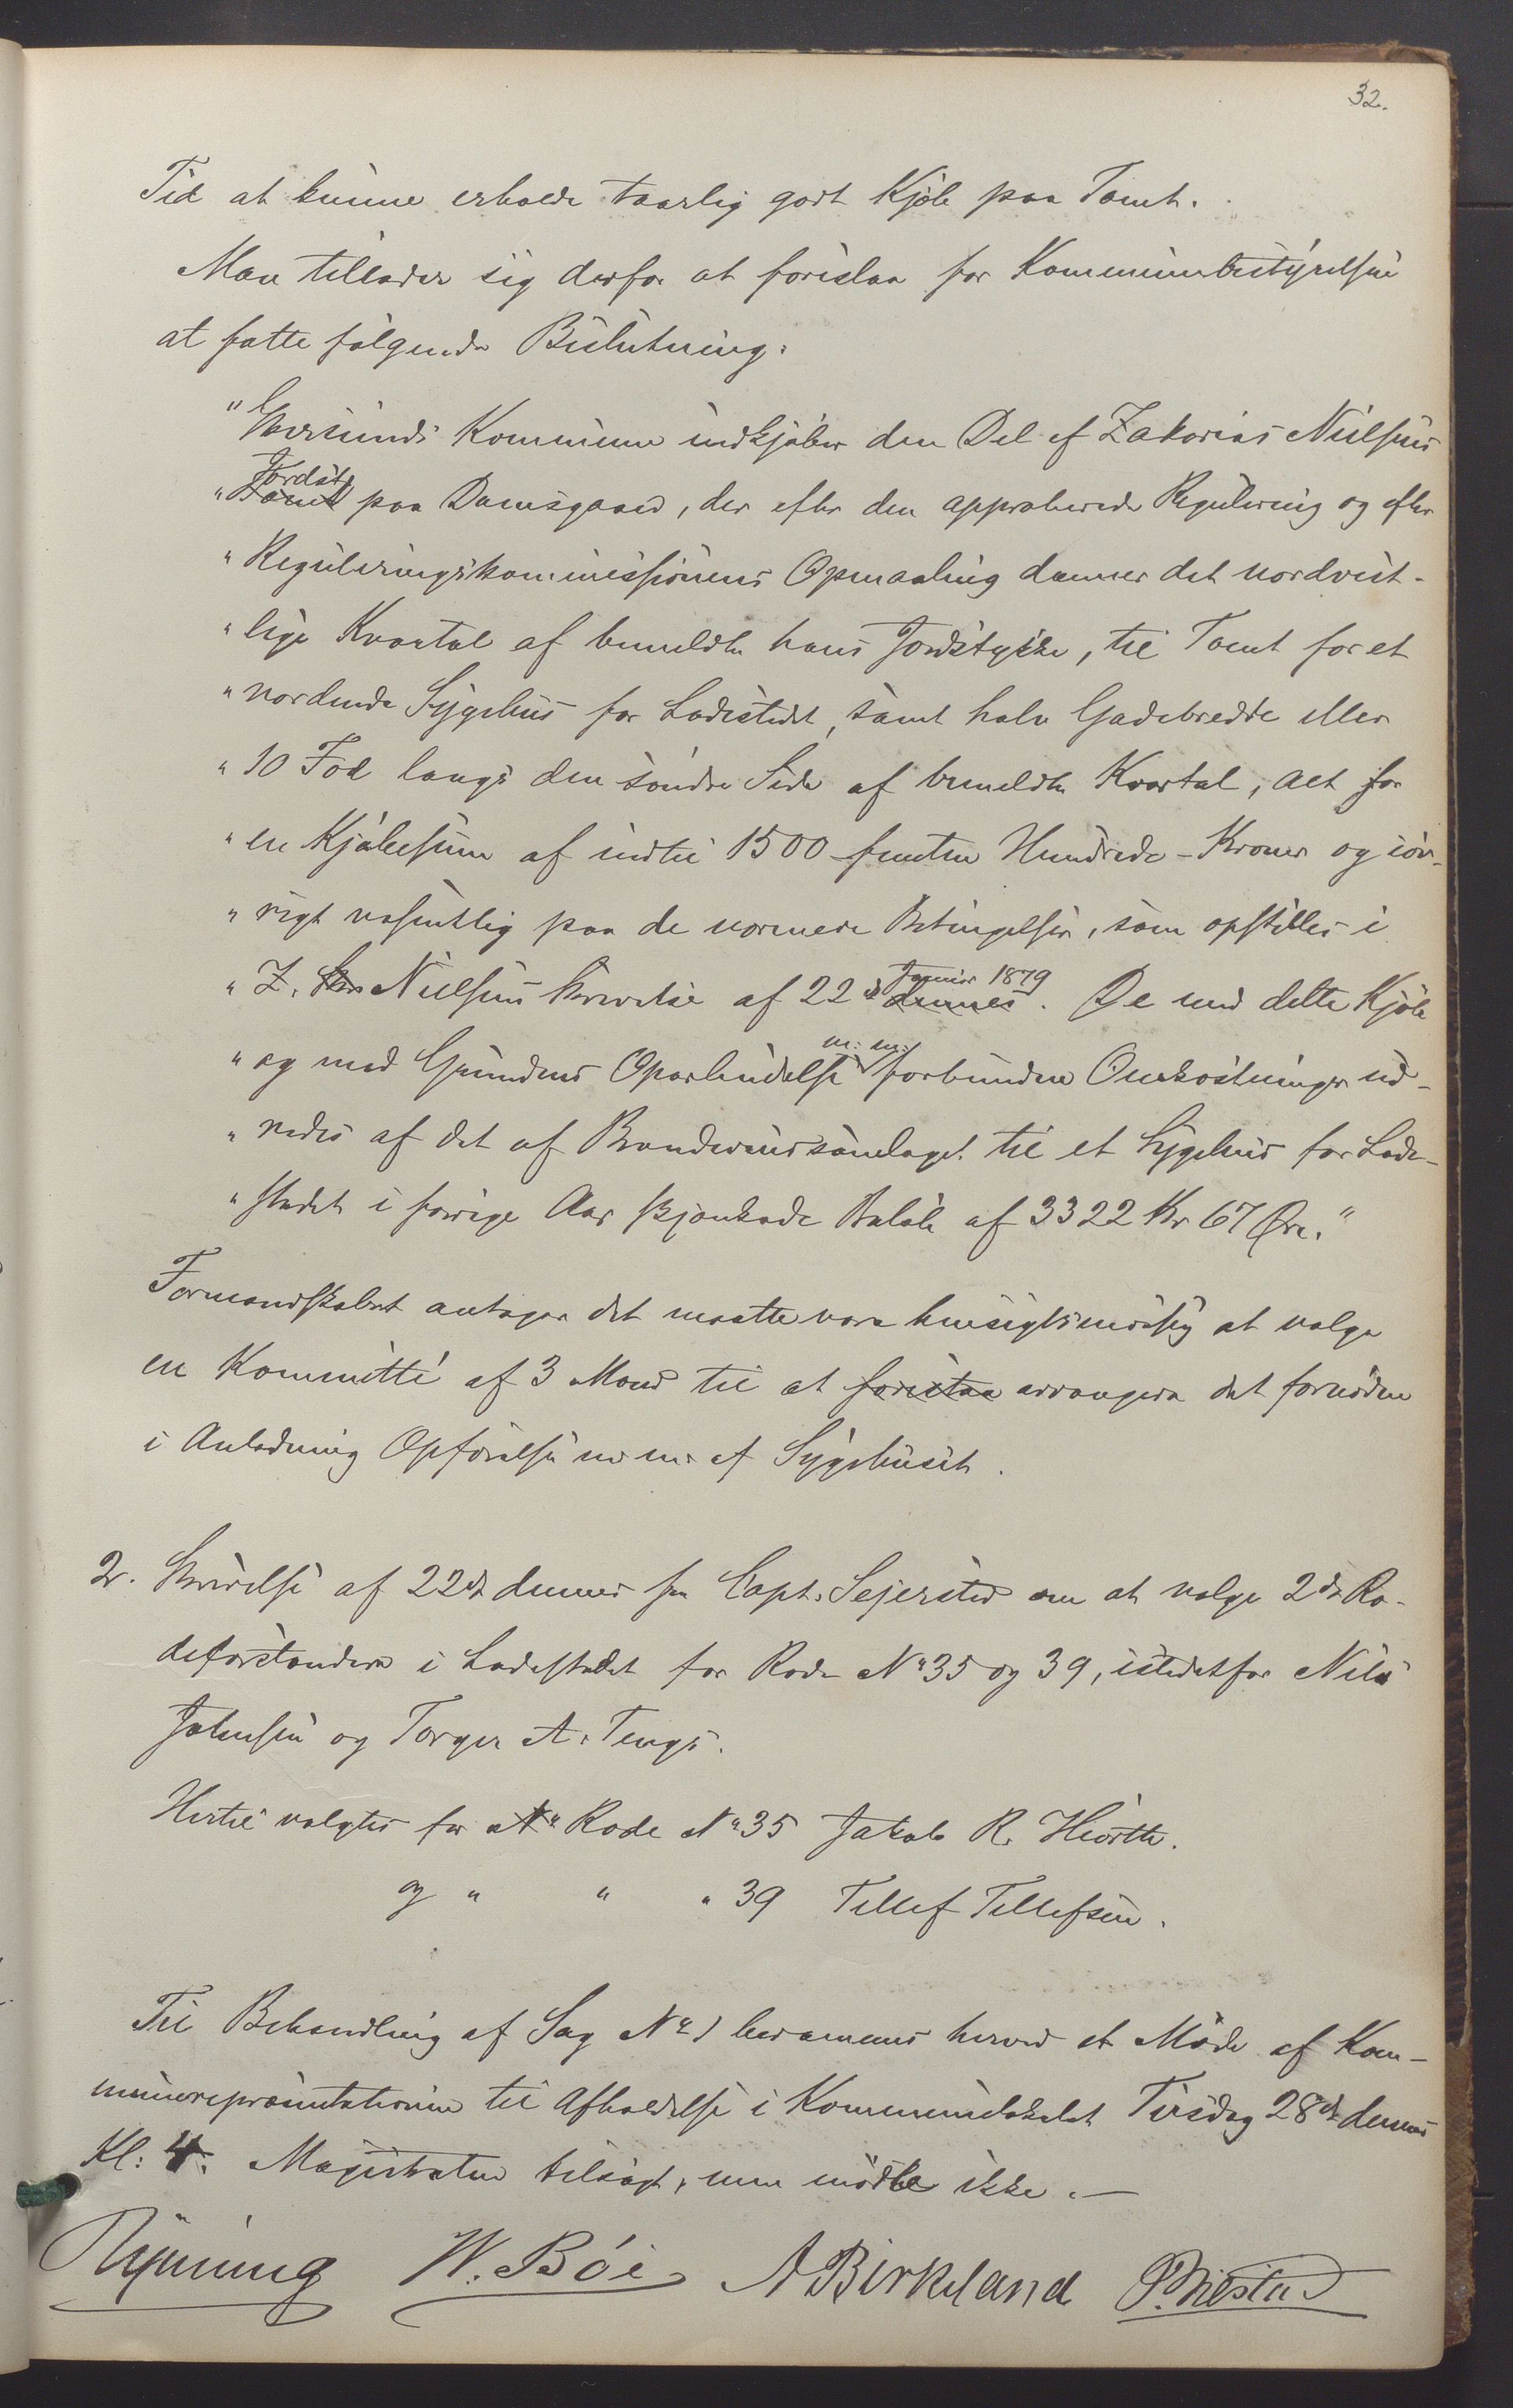 32.
Tid at kunne erholde taarlig godt Kjøb paa Tomt.
Man tillader sig derfor at foreslaa for Kommunebestyrelsen
at fatte følgende Beslutning:
"Egersunds Kommune indkjøber den Del af Zakarias Nielsens
Jordst.
" Tomt paa Damsgaard, der efter den approberede Regulering og efter
" Reguleringskommissionens Opmaaling danner det nordvest-
" lige Kvartal af bemeldte hans Jordstykke, til Tomt for et
" vordende Sygehus for Ladestedet, samt halv Gadebredde eller
" 10 Fod langs den søndre Side af bemeldte Kvartal, alt for
" en Kjøbesum af indtil 1500 femten Hundrede - Kroner og iøv-
" rigt vesentlig paa de nærmere Betingelser, som opstilles i
Januar 1879
" Z. Nielsens Skrivelse af 22de dennes. De med dette Kjøb
m: m:
" og med Grundens Oparbeidelse forbundne Omkostninger ud-
" redes af det af Brændevinssamlaget til et Sygehus for Lade-
" stedet i forrige Aar skjænkede Beløb af 3322 Kr 67 Øre."
Formandskabet antager det maatte være hensigtsmæssig at vælge
en Kommitté af 3 Mænd til at forestaa arrangere det fornødne
i Anledning Opførelse m. m. af Sygehuset.
2. Skrivelse af 22de dennes fra Capt. Sejersted om at vælge 2de Ro-
deforstandere i Ladestedet for Rode No 35 og 39, istedetfor Nils
Johnsen og Torger A. Tengs.
Hertil valgtes for No Rode No 35 Jakob R. Hiorth.
og " " " 39 Tellef Tellefsen.
Til Behandling af Sag No 1 berammes herved et Møde af Kom-
munerepræsentationen til Afholdelse i Kommunelokalet Tirsdag 28de dennes
Kl: 4. Magistraten tilsagt, men mødte ikke. —
W. Bøe A Birkeland